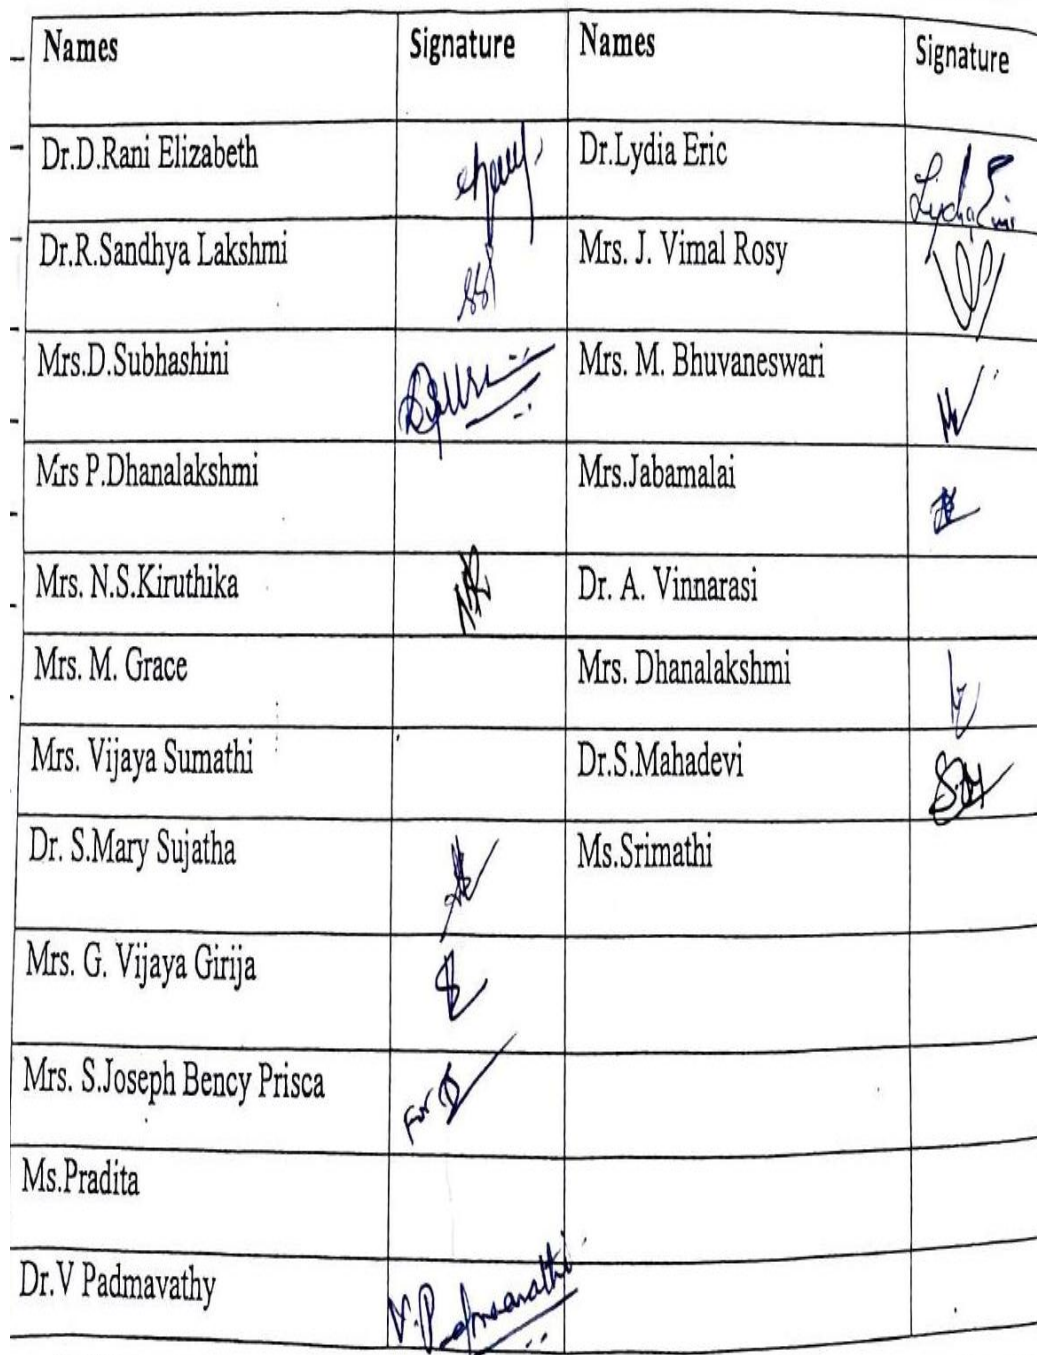 Names Signature Names Signature
Dr.D.Rani Elizabeth Dr.Lydia Eric Lydia Eric
Dr.R.Sandhya Lakshmi Mrs. J. Vimal Rosy
Mrs.D.Subhashini Mrs. M. Bhuvaneswari
Mrs P.Dhanalakshmi Mrs.Jabamalai
Mrs. N.S.Kiruthika Dr. A. Vinnarasi
Mrs. M. Grace Mrs. Dhanalakshmi
Mrs. Vijaya Sumathi Dr.S.Mahadevi
Dr. S.Mary Sujatha Ms.Srimathi
Mrs. G. Vijaya Girija
Mrs. S.Joseph Bency Prisca For
Ms.Pradita
Dr.V Padmavathy V.Padmavathi